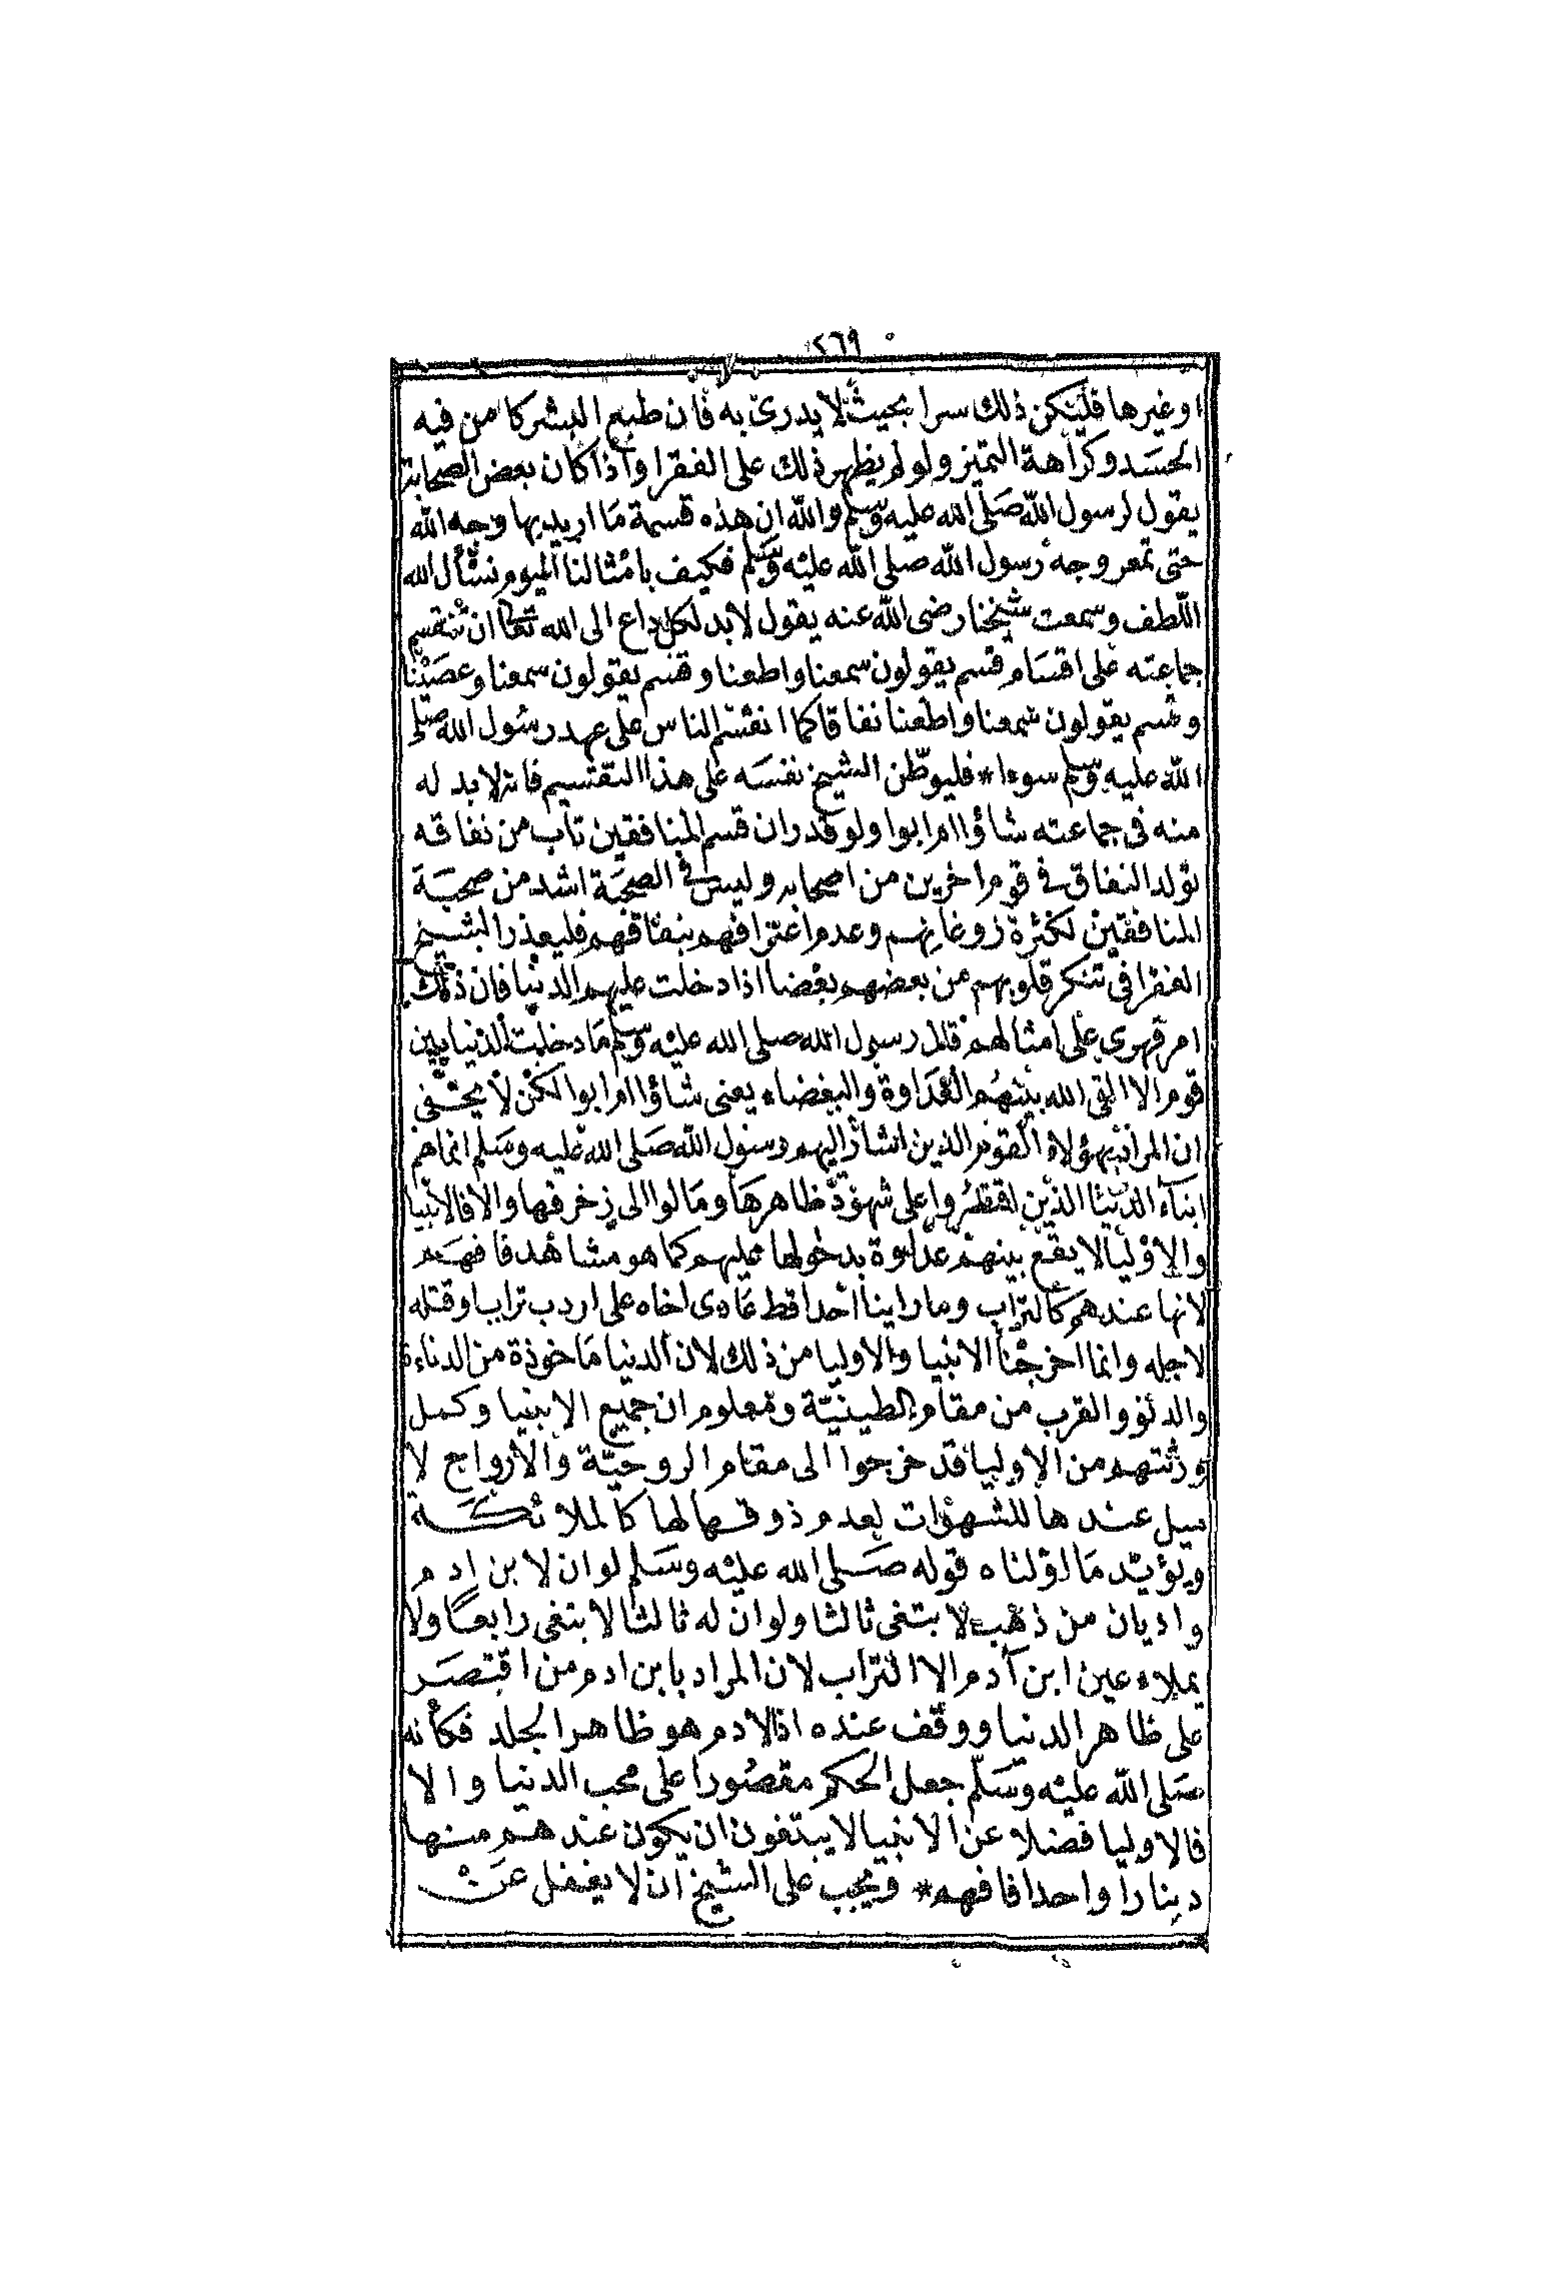 ٢٦٩
او غيرها فليكن ذلك سرا بحيث لا يدرى به فان طبع البشر كامن فيه
الحسد وكراهة التميز ولو لم يظهر ذلك على الفقرا واذا كان بعض الصحابة
يقول لرسول الله صلى الله عليه وسلم والله ان هذه قسمة ما اريد بها وجه الله
حتى تمعر وجه رسول الله صلى الله عليه وسلم فكيف بامثالنا اليوم نسأل الله
اللطف وسمعت شيخنا رضى الله عنه يقول لا بد لكل داع الى الله تعالى ان تنقسم
جماعته على اقسام قسم يقولون سمعنا واطعنا وقسم يقولون سمعنا وعصينا
وقسم يقولون سمعنا واطعنا نفاقا كما انقسم الناس على عهد رسول الله صلى
الله عليه وسلم سوءا * فليوطن الشيخ نفسه على هذا التقسيم فانه لا بد له
منه فى جماعته شاؤا ام ابوا ولو قدر ان قسم المنافقين تاب من نفاقه
تولد النفاق فى قوم اخرين من اصحابه وليس فى الصحبة اشد من صحبة
المنافقين لكثرة زوغانهم وعدم اعترافهم بنفاقهم فليعذر الشيخ
الفقرا فى تنكر قلوبهم من بعضهم بعضا اذا دخلت عليهم الدنيا فان ذلك
امر قهرى على امثالهم قال رسول الله صلى الله عليه وسلم ما دخلت الدنيا بين
قوم الا القى الله بينهم العداوة والبغضاء يعنى شاؤا ام ابوا لكن لا يخفى
ان المراد بهؤلاء القوم الذين اشار اليهم رسول الله صلى الله عليه وسلم انما هم
ابناء الدنيا الذين اقتصروا على شهود ظاهرها ومالوا الى زخرفها والا فالانبيا
والاوليا لا يقع بينهم عداوة بدخولها عليهم كما هو مشاهد فافهم
لانها عندهم كالتراب وما راينا احدا قط عادى اخاه على اردب تراب او قتله
لاجله وانما اخرجنا الانبيا والاوليا من ذلك لان الدنيا ماخوذة من الدناءة
والدنو والقرب من مقام الطينية ومعلوم ان جميع الانبيا وكمل
ورثتهم من الاوليا قد خرجوا الى مقام الروحية والارواح لا
ميل عندها للشهوات لعدم ذوقها لها كالملائكة
ويؤيد ما اولناه قوله صلى الله عليه وسلم لو ان لابن ادم
واديان من ذهب لابتغى ثالثا ولو ان له ثالثا لابتغى رابعا ولا
يملاء عين ابن آدم الا التراب لان المراد بابن ادم من اقتصر
على ظاهر الدنيا ووقف عنده اذ الادم هو ظاهر الجلد فكأنه
صلى الله عليه وسلم جعل الحكم مقصورا على محب الدنيا والا
فالاوليا فضلا عن الانبيا لا يبتغون ان يكون عندهم منها
دينارا واحدا فافهم * ويجب على الشيخ ان لا يغفل عن